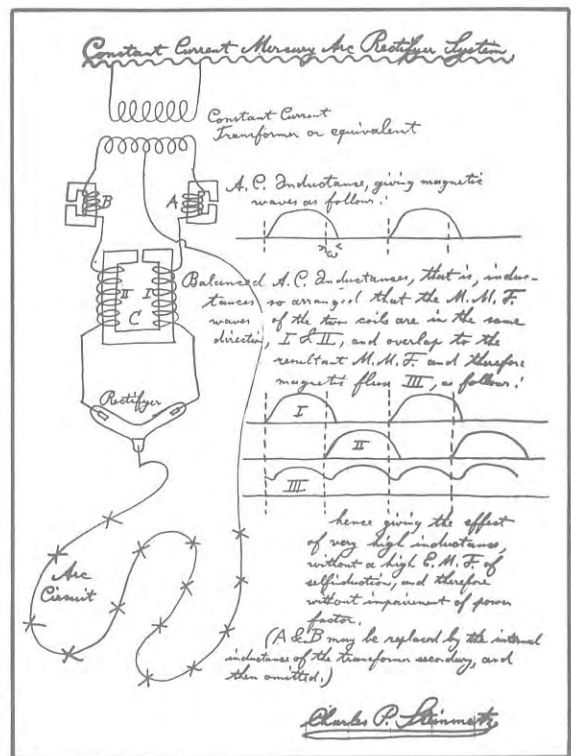 Constant Current Mercury Arc Rectifyer System
Constant Current
Transformer or equivalent
B
A
A.C. Inductance, giving magnetic
waves as follow:
ω
Balanced A.C. Inductances, that is, induc-
tances so arranged that the M.M.F.
waves of the two coils are in the same
direction, I & II, and overlap to the
resultant M.M.F. and therefore
magnetic flux III, as follow:
II
I
C
Rectifyer
I
II
III
hence giving the effect
of very high inductance,
without a high E.M.F. of
selfinduction, and therefore
without impairement of power
factor.
(A & B may be replaced by the internal
inductance of the transformer secondary, and
then omitted.)
Arc
Circuit
Charles P. Steinmetz